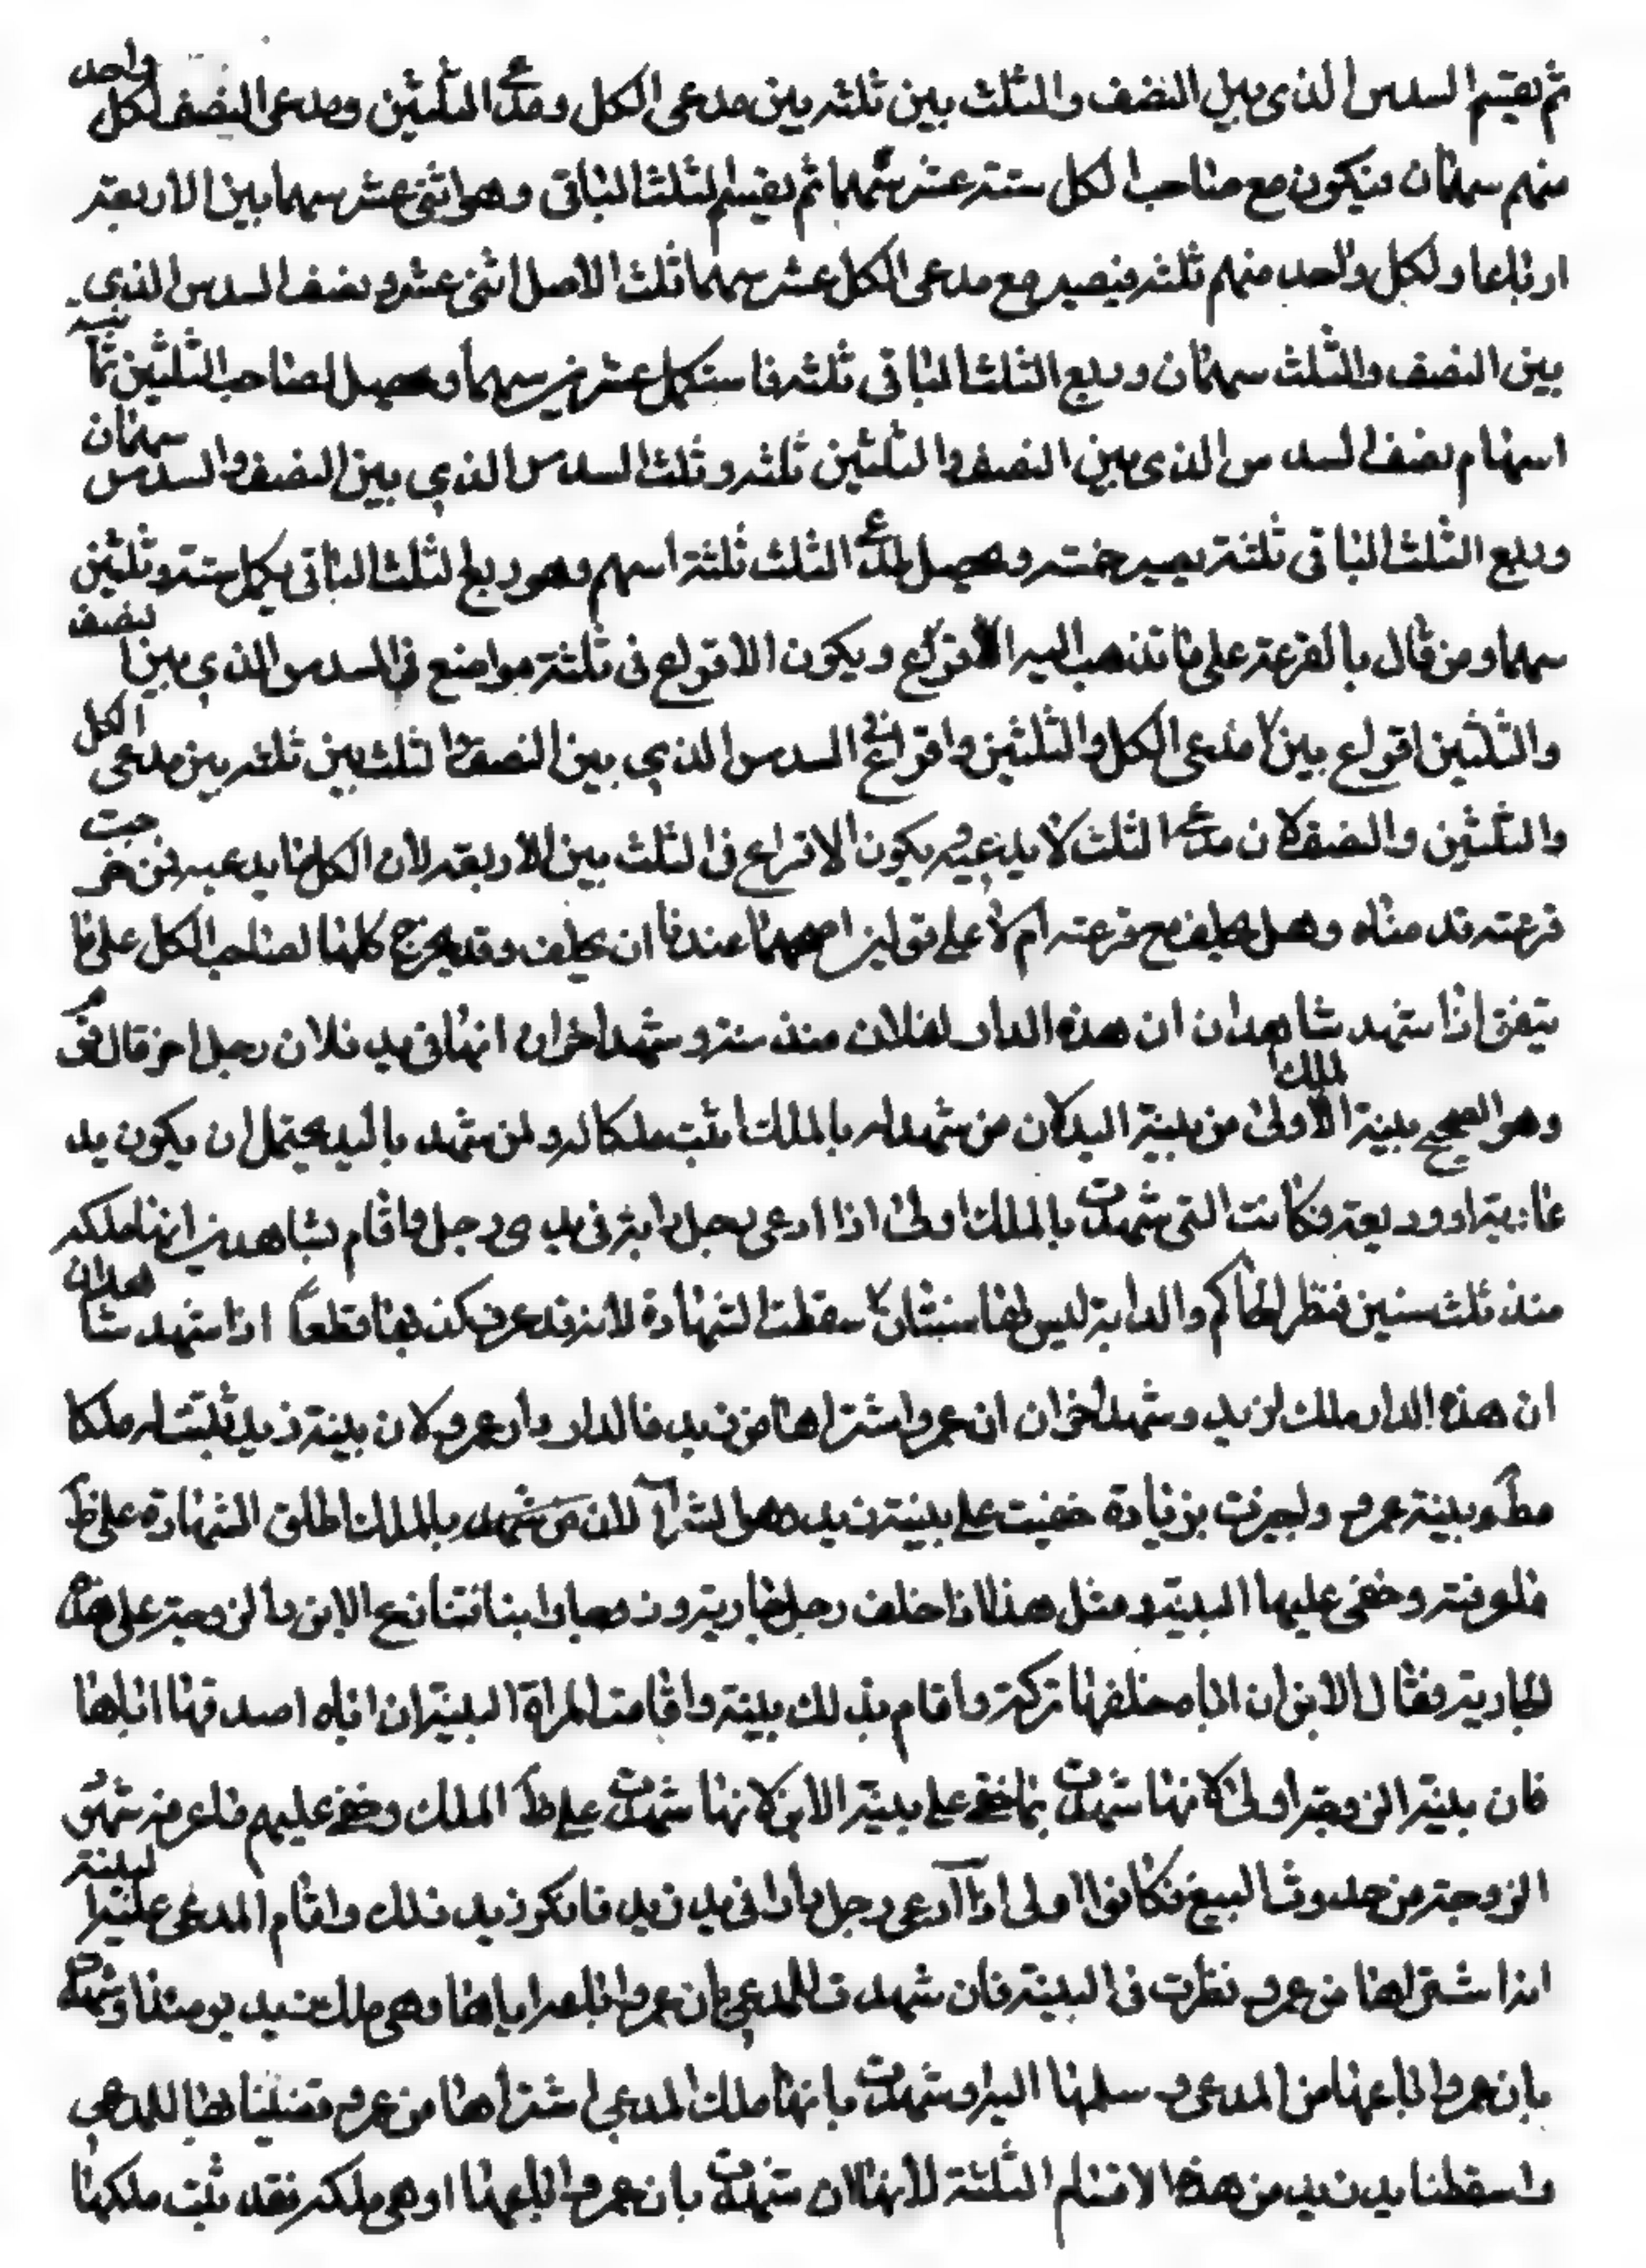 ثم يقسم السدس الذي بين النصف والثلث بين ثلثه بين مدعى الكل ومدعى الثلثين ومدعى النصف لكل واحد
منهم سهمان فيكون مع صاحب الكل ستة عشر سهما ثم يقسم الثلث الباقى وهو اثنى عشر سهما بين الاربعة
ارباعا ولكل واحد منهم ثلثه فيصير مع مدعى الكل عشر سهما ثلث الاصل اثنى عشر ونصف السدس الذي
بين النصف والثلث سهمان وربع الثلث الباقى ثلثه فاستكمل عشرين سهما ويحصل لصاحب الثلثين ثمانية
اسهام نصف السدس الذى بين النصف والثلثين ثلثه وثلث السدس الذي بين النصف والسدس سهمان
وربع الثلث الباقى ثلثة يصير خمسه ويحصل لمدعى الثلث ثلثة اسهم وهو ربع الثلث الباقى يكمل ستة وثلثين
سهما ومن قال بالقرعة على ما تذهب اليه الاقراع ويكون الاقراع فى ثلثة مواضع فى السدس الذي بين النصف
والثلثين اقراع بين مدعى الكل والثلثين واقراع فى السدس الذي بين النصف والثلث بين ثلثه بين مدعى الكل
والثلثين والنصف لان مدعى الثلث لا يدعيه ويكون الاقراع فى الثلث بين الاربعة لان الكل يدعيه فمن خرجت
قرعته قدمناه وهل يحلف مع قرعته ام لا على قولين اصحهما عندنا ان يحلف وقد يخرج كلها لصاحب الكل على ما
يتفق اذا شهد شاهدان ان هذه الدار لفلان منذ سنة وشهد اخران انها فى يد فلان رجل اخر قال قوم
وهو الصحيح بينة الملك اولى من بينة اليد لان من شهد له بالملك اثبت ملكا له ومن شهد باليد يحتمل ان يكون يد
عارية او وديعة فكانت التى شهدت بالملك اولى اذا ادعى رجل دابة فى يدى رجل واقام شاهدين انها ملكه
منذ ثلث سنين فنظر الحاكم والدابة ليس لها سنتان سقطت الشهادة لانه قد عرف كذبها قطعاً اذا شهد شاهدان
ان هذه الدار ملك لزيد وشهد اخران ان عمروا اشتراها من زيد فالدار دار عمرو لان بينة زيد تثبت له ملكا
مط وبينة عمرو اخبرت بزيادة خفيت على بينة زيد وهو الشراء لان من شهد بالملك اطلق الشهادة على ظ
ما عرفته وخفى عليها البينة ومثل هذا اذا خلف رجل جارية وزوجة وابنا فتنازع الابن والزوجة على هذه
الجارية فقال الابن ان اباه خلفها تركة واقام بذلك بينة واقامت المراة البينة ان اباه اصدقها اياها
فان بينة الزوجة اولى لانها شهدت بما خفى على بينة الابن لانها شهدت على ظ الملك وخفى عليهم ما عرفه شهود
الزوجة من حدوث البيع فكانوا اولى اذا ادعى رجل دارا فى يد زيد فانكر زيد ذلك واقام المدعى البينة
انه اشتراها من عمرو نظرت فى البينة فان شهدت للمدعي بان عمروا باعه اياها وهى ملكه يومئذ او شهدت
بان عمروا باعها من المدعى وسلمها اليه او شهدت بانها ملك المدعى اشتراها من عمرو قضينا بها للمدعي
واسقطنا يد زيد من هذه الاقسام الثلثة لانها لان شهدت بان عمروا باعها وهى ملكه فقد ثبت ملكها